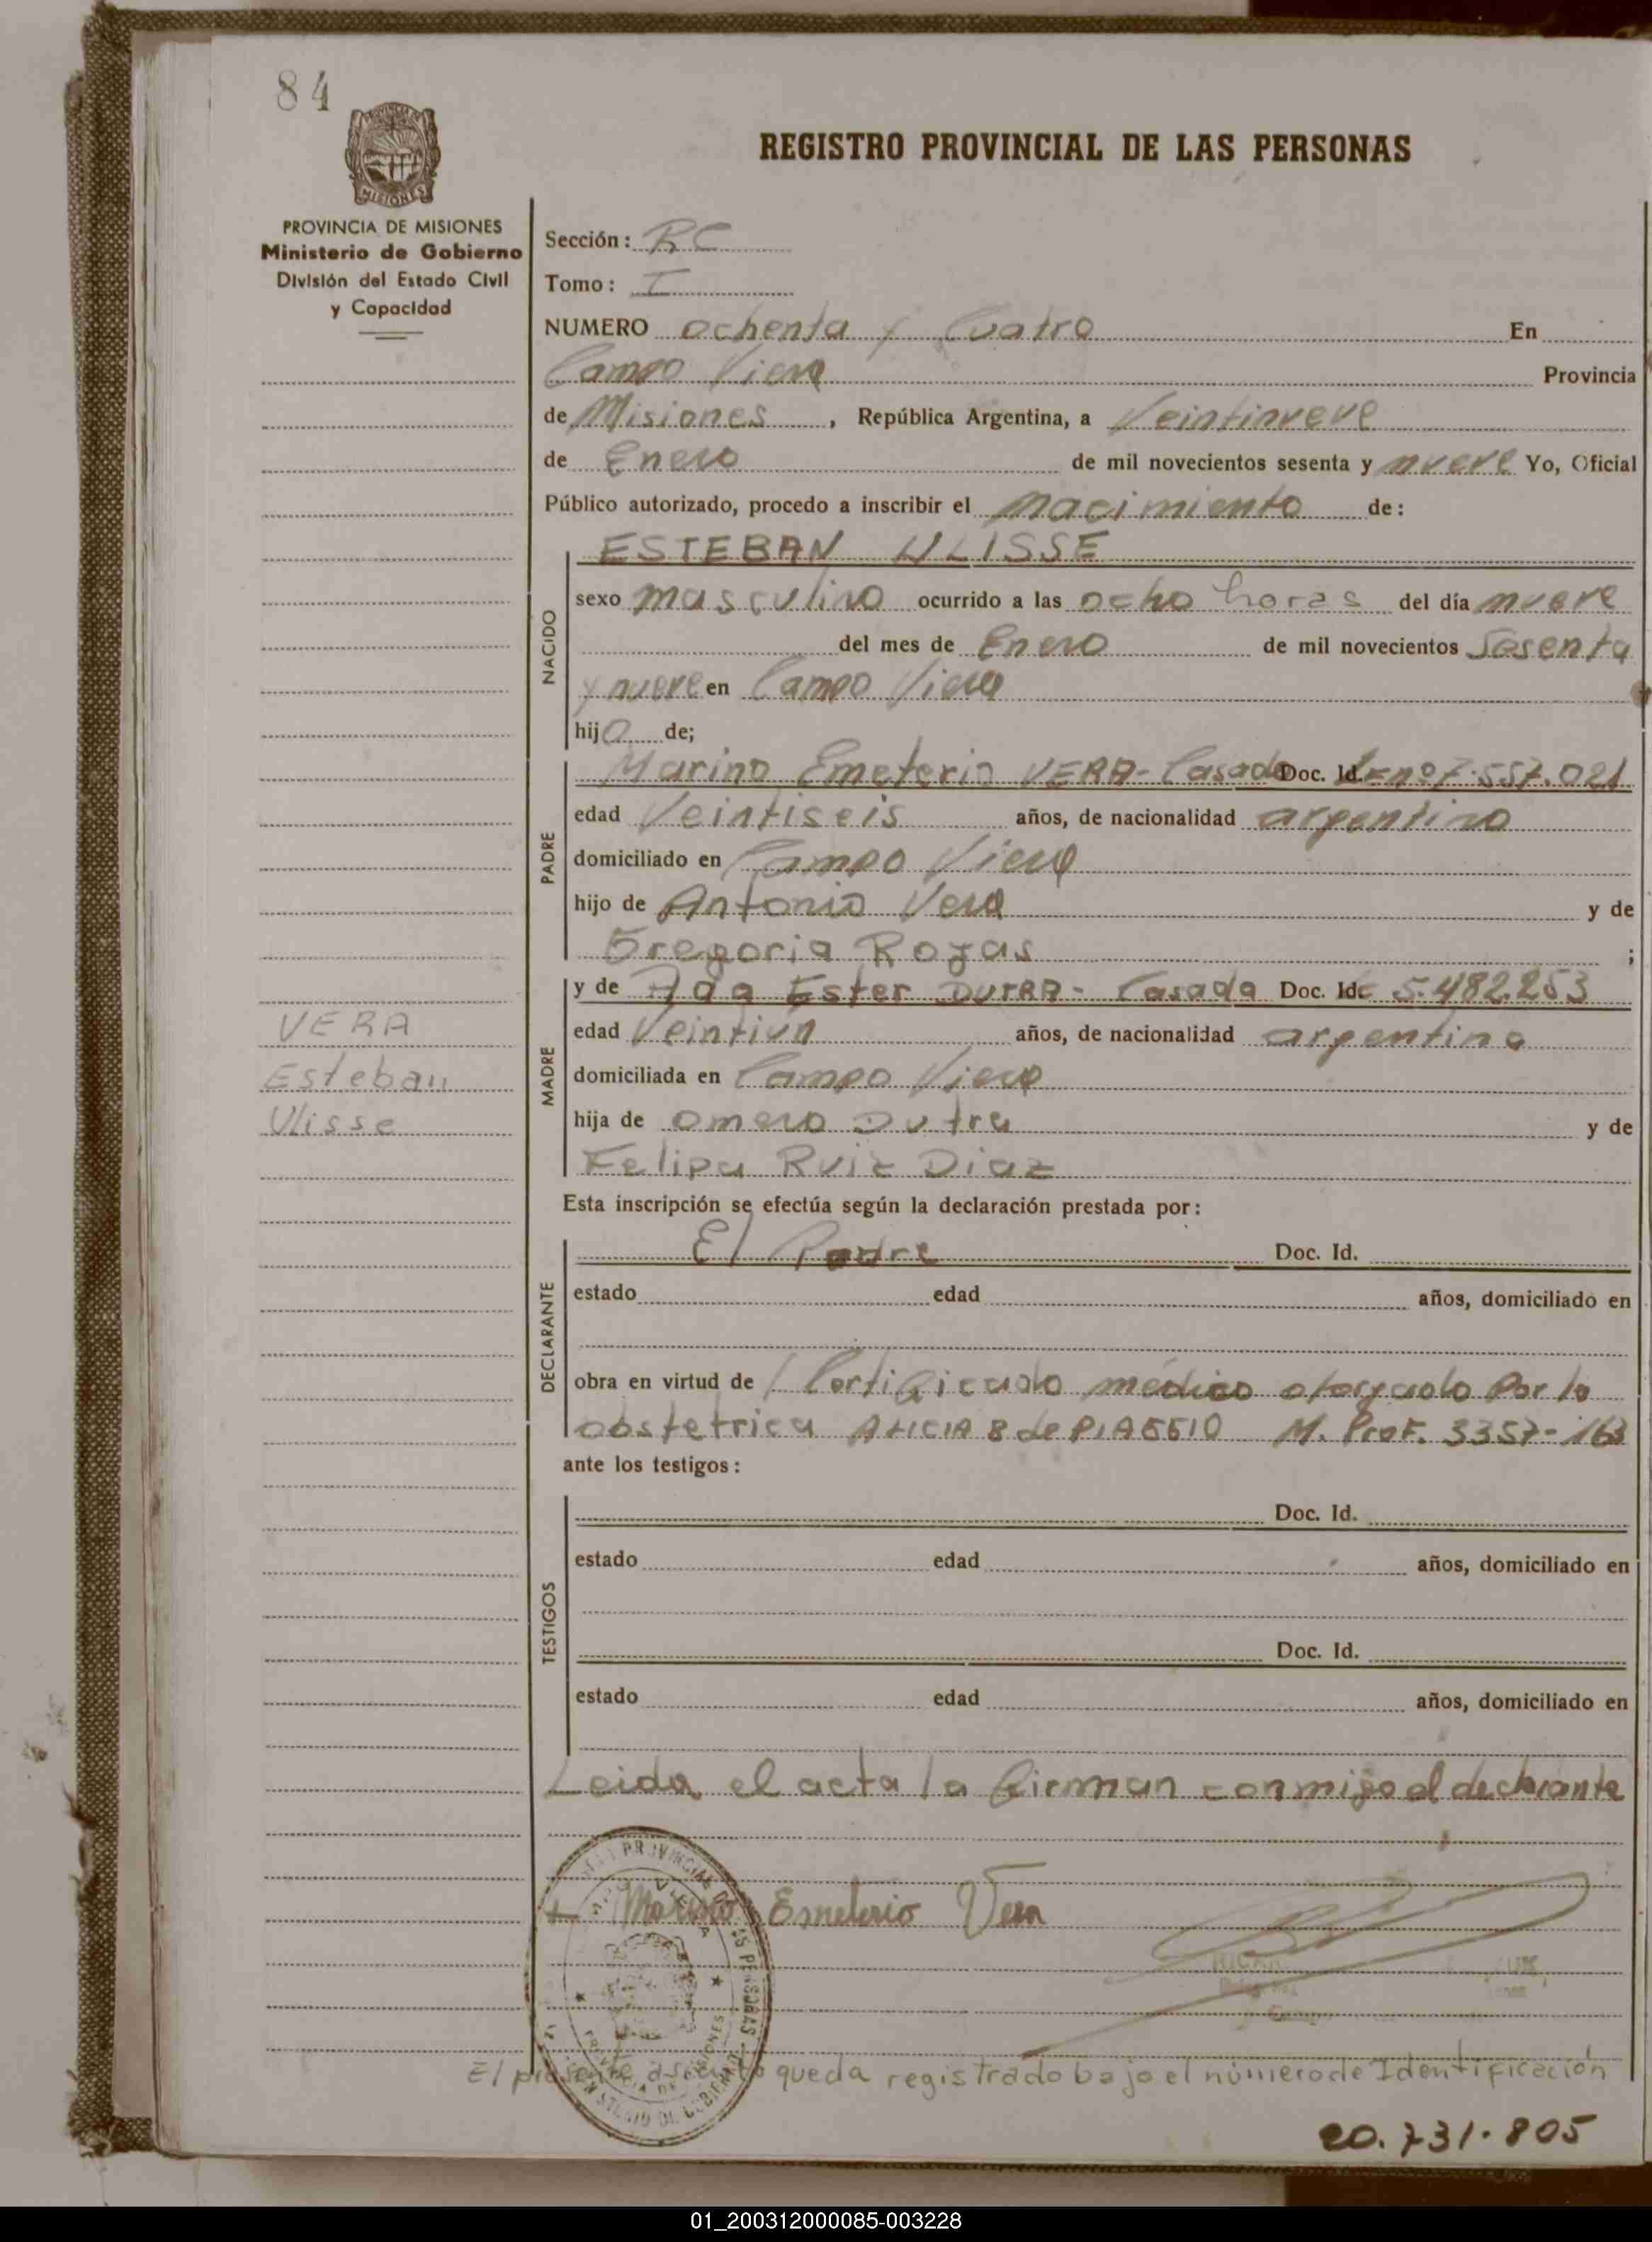 84
MISIONES
PROVINCIA DE MISIONES
Ministerio de Gobierno
División del Estado Civil
y Capacidad
REGISTRO PROVINCIAL DE LAS PERSONAS
Sección: RC
Tomo: I
NUMERO ochenta y Cuatro En
Campo Viera Provincia
de Misiones, República Argentina, a Veintinueve
de Enero de mil novecientos sesenta y nueve Yo, Oficial
Público autorizado, procedo a inscribir el nacimiento de:
NACIDO
ESTEBAN ULISSE
sexo masculino ocurrido a las ocho horas del día nueve
del mes de Enero de mil novecientos Sesenta
y nueve en Campo Viera
hijo de;
PADRE
Marino Emeterio VERA- Casado Doc. Id. LE nº 7.557.021
edad Veintiseis años, de nacionalidad argentino
domiciliado en Campo Viera
hijo de Antonio Vera y de
Gregoria Rojas ;
MADRE
y de Ada Ester DUTRA- Casada Doc. Id. 5.482.253
edad Veintiun años, de nacionalidad argentina
domiciliada en Campo Viera
hija de Omero Dutra y de
Felipa Ruiz Diaz
VERA
Esteban
Ulisse
Esta inscripción se efectúa según la declaración prestada por:
DECLARANTE
El Padre Doc. Id.
estado edad años, domiciliado en
obra en virtud de / Certificado médico otorgado Por la
obstetrica ALICIA B de M. Prof. 3357-163
ante los testigos:
TESTIGOS
Doc. Id.
estado edad años, domiciliado en
Doc. Id.
estado edad años, domiciliado en
Leida el acta la firman conmigo el declarante
Marino Emeterio Vera
El presente asiento queda registrado bajo el número de Identificación
20.731.805
01_200312000085-003228